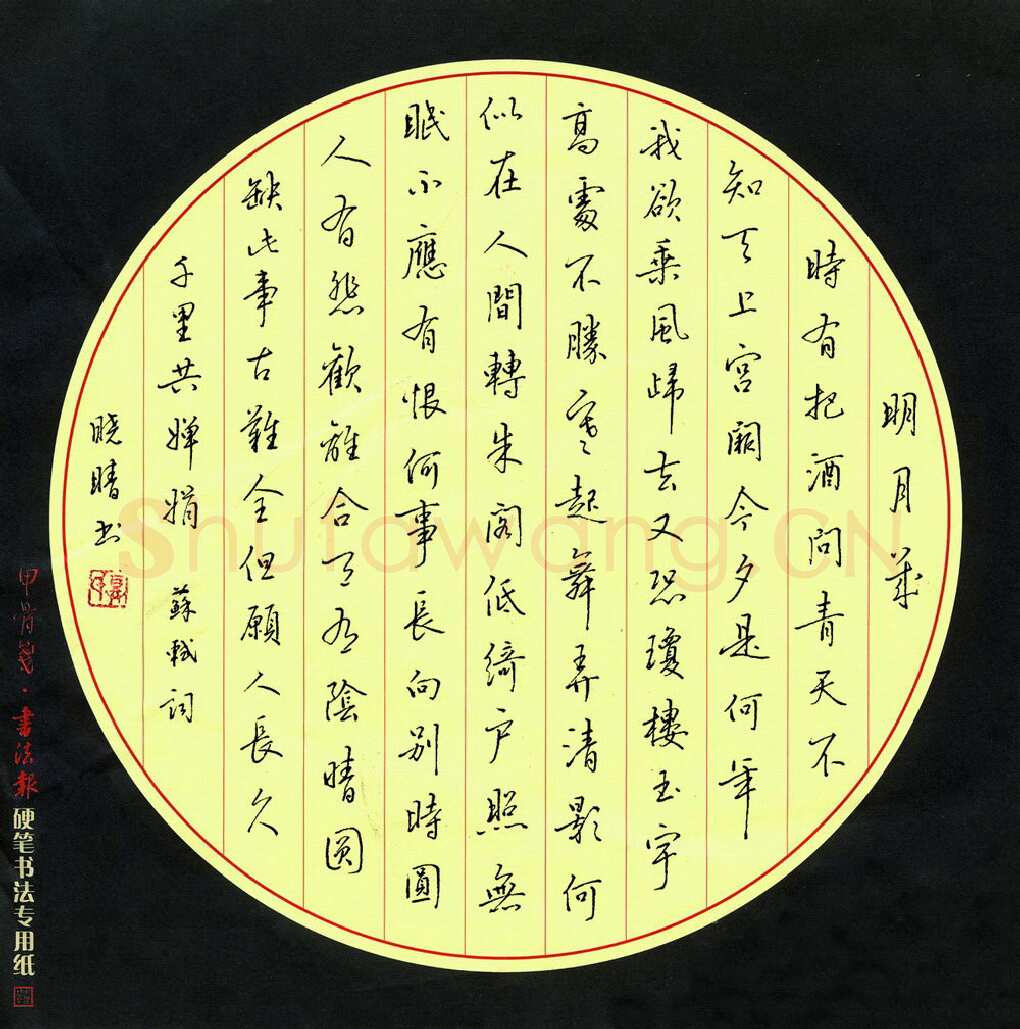 明月幾
時有把酒問青天不
知天上宮闕今夕是何年
我欲乘風歸去又恐瓊樓玉宇
高處不勝寒起舞弄清影何
似在人間轉朱閣低綺戶照無
眠不應有恨何事長向別時圓
人有悲歡離合月有陰晴圆
缺此事古難全但願人長久
千里共嬋娟 蘇軾詞
晓晴书
甲骨箋·書法報硬笔书法专用纸
Shufawang.CN